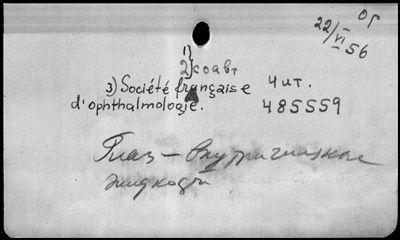 от
22/VI 56
1)
2) соавт
3) Société française
d'ophthalmologie.
4 ит.
485559
Глаз — Внутриглазные
жидкости